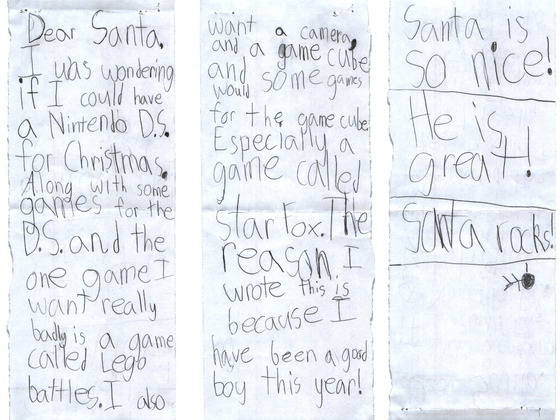 Dear Santa,
I was wondering
if I could have
a Nintendo D.S.
for Christmas.
Along with some
games for the
D.S. and the
one game I
want really
badly is a game
called Lego
battles. I also
want a camera,
and a game cube
and some games
would
for the game cube
Especially a
game called
Star Fox. The
reason I
wrote this is
because I
have been a good
boy this year!
Santa is
so nice!
He is
great!
Santa rocks!